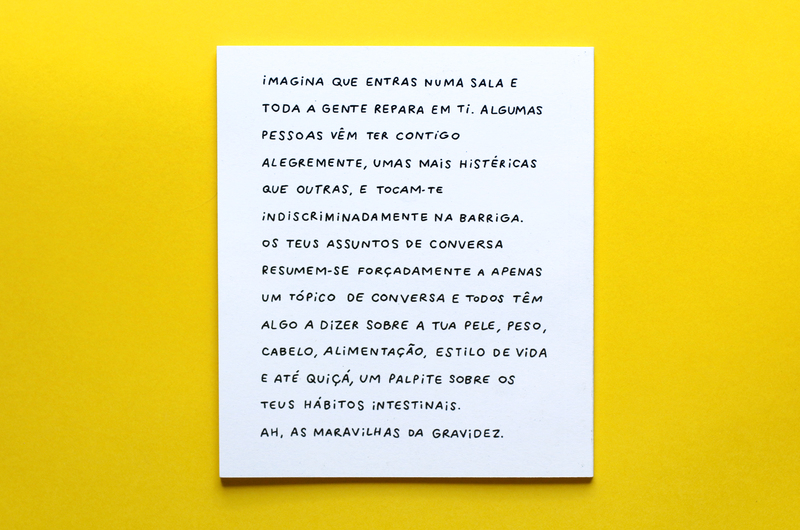 IMAGINA QUE ENTRAS NUMA SALA E
TODA A GENTE REPARA EM TI. ALGUMAS
PESSOAS VÊM TER CONTIGO
ALEGREMENTE, UMAS MAIS HISTÉRICAS
QUE OUTRAS, E TOCAM-TE
INDISCRIMINADAMENTE NA BARRIGA.
OS TEUS ASSUNTOS DE CONVERSA
RESUMEM-SE FORÇADAMENTE A APENAS
UM TÓPICO DE CONVERSA E TODOS TÊM
ALGO A DIZER SOBRE A TUA PELE, PESO,
CABELO, ALIMENTAÇÃO, ESTILO DE VIDA
E ATÉ QUIÇÁ, UM PALPITE SOBRE OS
TEUS HÁBITOS INTESTINAIS.
AH, AS MARAVILHAS DA GRAVIDEZ.